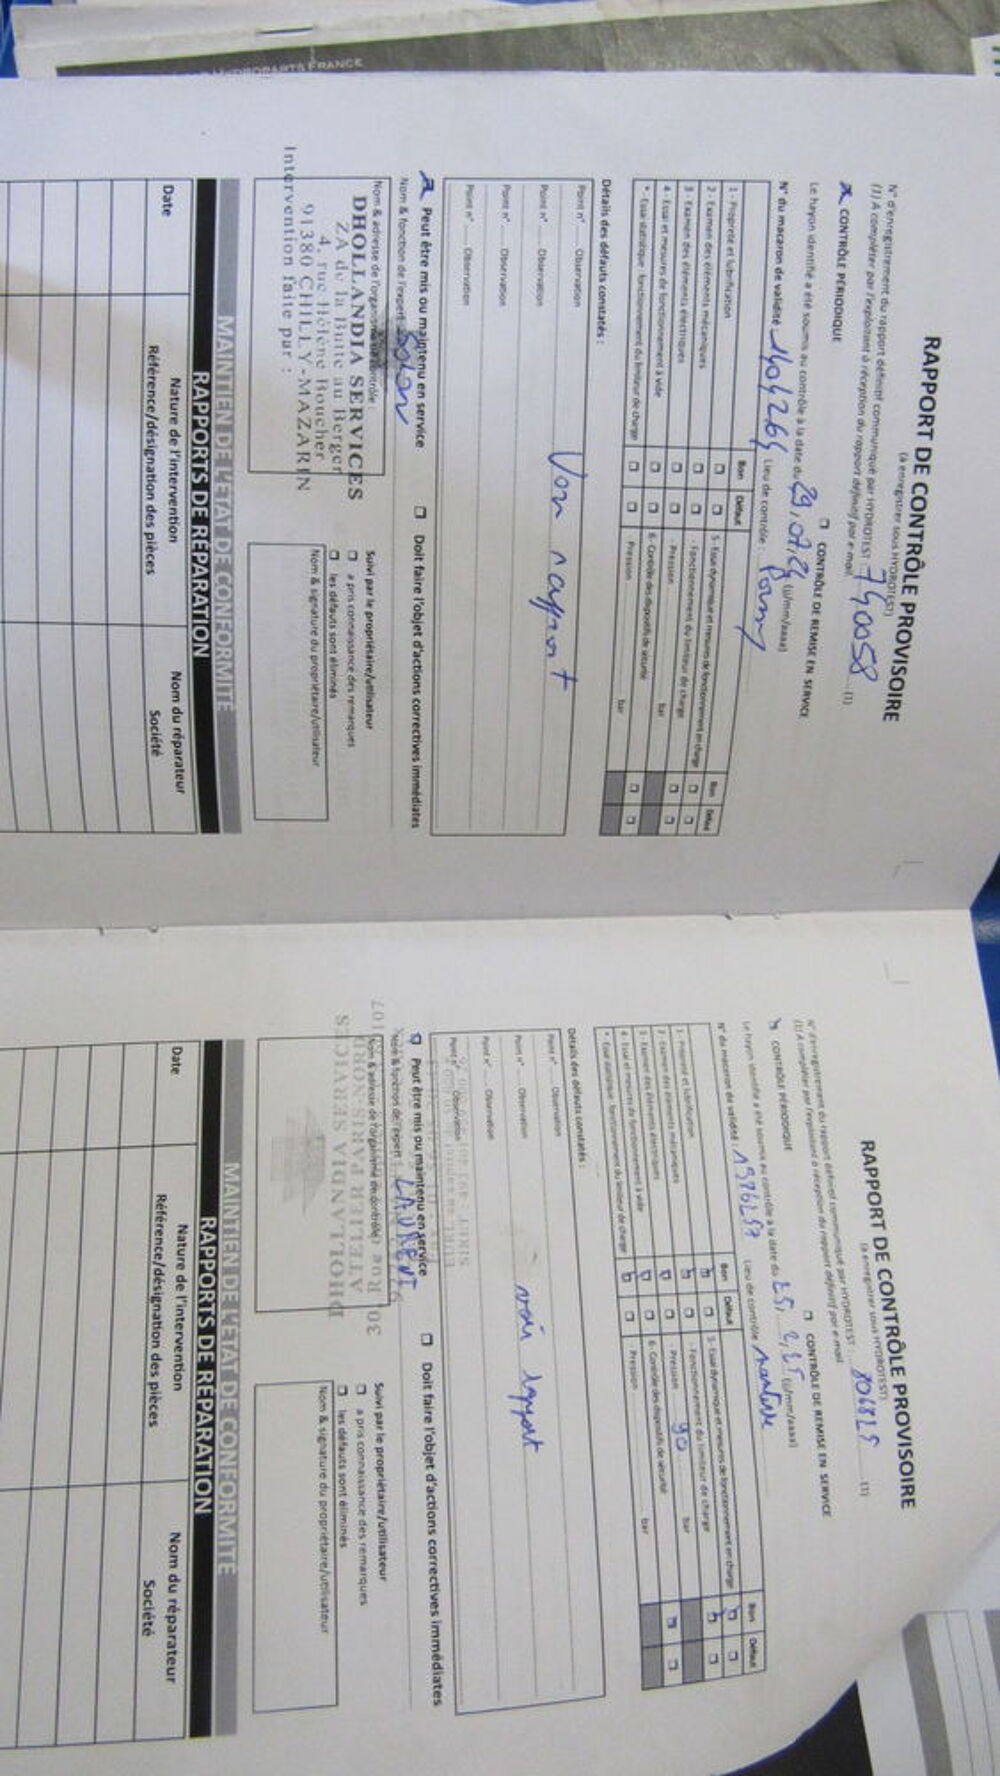 HYDROPARTS FRANCE
RAPPORT DE CONTRÔLE PROVISOIRE
(à enregistrer sous HYDROTEST)
N° d'enregistrement du rapport définitif communiqué par HYDROTEST : 740058 (1)
(1) A compléter par l'exploitant à réception du rapport définitif par e-mail.
CONTRÔLE PÉRIODIQUE ☐ CONTRÔLE DE REMISE EN SERVICE
Le hayon identifié a été soumis au contrôle à la date du 29.07.24 (jj/mm/aaaa)
N° du macaron de validité : Lieu de contrôle :
Bon Défaut
1 - Propreté et lubrification ☐ ☐
2 - Examen des éléments mécaniques ☐ ☐
3 - Examen des éléments électriques ☐ ☐
4 - Essai et mesures de fonctionnement à vide ☐ ☐
* - Essai statique : fonctionnement du limiteur de charge ☐ ☐
Bon Défaut
5 - Essai dynamique et mesures de fonctionnement en charge
- Fonctionnement du limiteur de charge ☐ ☐
- Pression bar ☐ ☐
6 - Contrôle des dispositifs de sécurité
- Pression bar ☐ ☐
Détails des défauts constatés :
Point n° Observation
Point n° Observation
Point n° Observation
Point n° Observation
Voir rapport
Peut être mis ou maintenu en service ☐ Doit faire l'objet d'actions correctives immédiates
Nom & fonction de l'expert
Nom & adresse de l'organisme de contrôle :
DHOLLANDIA SERVICES
ZA de la Butte au Berger
4, rue Hélène Boucher
91380 CHILLY-MAZARIN
Intervention faite par :
Suivi par le propriétaire/utilisateur
☐ a pris connaissance des remarques
☐ les défauts sont éliminés
Nom & signature du propriétaire/utilisateur
MAINTIEN DE L'ÉTAT DE CONFORMITÉ
RAPPORTS DE RÉPARATION
Date
Nature de l'intervention
Référence/désignation des pièces
Nom du réparateur
Société
RAPPORT DE CONTRÔLE PROVISOIRE
(à enregistrer sous HYDROTEST)
N° d'enregistrement du rapport définitif communiqué par HYDROTEST : (1)
(1) A compléter par l'exploitant à réception du rapport définitif par e-mail
CONTRÔLE PÉRIODIQUE ☐ CONTRÔLE DE REMISE EN SERVICE
Le hayon identifié a été soumis au contrôle à la date du (jj/mm/aaaa)
N° du macaron de validité : Lieu de contrôle :
Bon Défaut
1 - Propreté et lubrification
2 - Examen des éléments mécaniques
3 - Examen des éléments électriques
4 - Essai et mesures de fonctionnement à vide
* - Essai statique : fonctionnement du limiteur de charge
Bon Défaut
5 - Essai dynamique et mesures de fonctionnement en charge
- Fonctionnement du limiteur de charge
- Pression 90 bar
6 - Contrôle des dispositifs de sécurité
- Pression bar
Détails des défauts constatés :
Point n° Observation
Point n° Observation
Point n° Observation
Point n° Observation
voir rapport
Peut être mis ou maintenu en service ☐ Doit faire l'objet d'actions correctives immédiates
Nom & fonction de l'expert : LAURENT
Nom & adresse de l'organisme de contrôle
DHOLLANDIA SERVICES
ATELIER PARIS NORD
Suivi par le propriétaire/utilisateur
☐ a pris connaissance des remarques
☐ les défauts sont éliminés
Nom & signature du propriétaire/utilisateur
MAINTIEN DE L'ÉTAT DE CONFORMITÉ
RAPPORTS DE RÉPARATION
Date
Nature de l'intervention
Référence/désignation des pièces
Nom du réparateur
Société